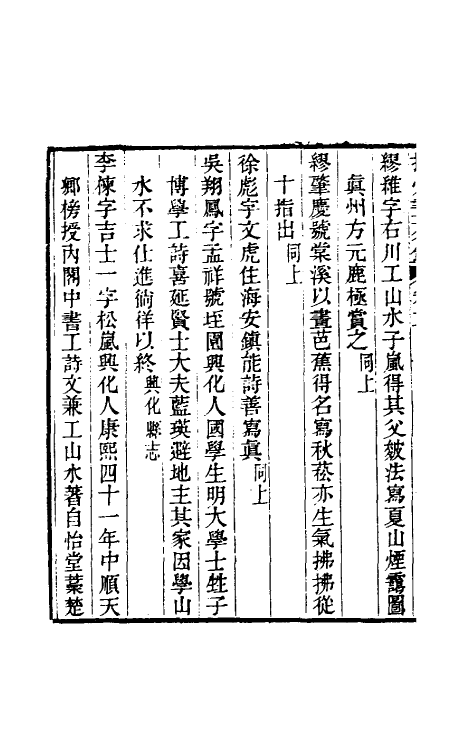 繆雒字石川工山水子嵐得其父皴法寫夏山煙靄圖
眞州方元鹿極賞之同上
繆肇慶號棠溪以畫芭蕉得名寫秋菘亦生氣拂拂從
十指出同上
徐彪字文虎住海安鎮能詩善寫眞同上
吳翔鳳字孟祥號垤園興化人國學生明大學士甡子
博學工詩喜延賢士大夫藍瑛避地主其家因學山
水不求仕進徜徉以終興化縣志
李楝字吉士一字松嵐興化人康熙四十一年中順天
鄉榜授內閣中書工詩文兼工山水著自怡堂藁楚